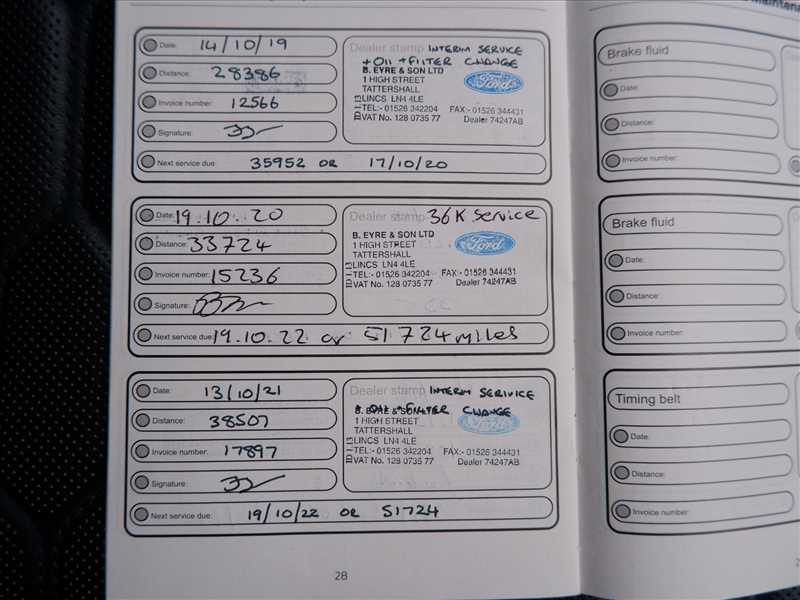 Date: 14/10/19
Distance: 28386
Invoice number: 12566
Signature:
Next service due: 35952 OR 17/10/20
Dealer stamp INTERIM SERVICE
+ OIL + FILTER CHANGE
B. EYRE & SON LTD
1 HIGH STREET
TATTERSHALL
LINCS LN4 4LE
TEL:- 01526 342204 FAX:- 01526 344431
VAT No. 128 0735 77 Dealer 74247AB
Ford
Date: 19.10.20
Distance: 33724
Invoice number: 15236
Signature:
Next service due: 19.10.22 or 51724 miles
Dealer stamp 36K Service
B. EYRE & SON LTD
1 HIGH STREET
TATTERSHALL
LINCS LN4 4LE
TEL:- 01526 342204 FAX:- 01526 344431
VAT No. 128 0735 77 Dealer 74247AB
Ford
Date: 13/10/21
Distance: 38507
Invoice number: 17897
Signature:
Next service due: 19/10/22 OR 51724
Dealer stamp INTERIM SERIVICE
+ OIL + FILTER CHANGE
B. EYRE & SON LTD
1 HIGH STREET
TATTERSHALL
LINCS LN4 4LE
TEL:- 01526 342204 FAX:- 01526 344431
VAT No. 128 0735 77 Dealer 74247AB
Ford
28
Brake fluid
Date:
Distance:
Invoice number:
Brake fluid
Date:
Distance:
Invoice number:
Timing belt
Date:
Distance:
Invoice number: